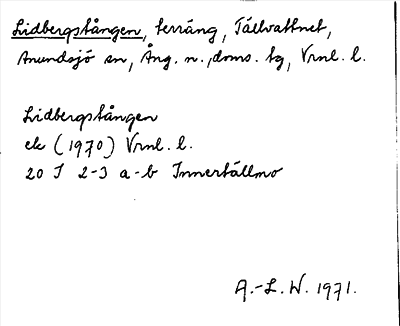 Lidbergstången, terräng, Tällvattnet,
Anundsjö sn, Ång. n., doms. tg, Vrnl. l.
Lidbergstången
ek (1970) Vrnl. l.
20 J 2-3 a-b Innertällmo
A.-L. W. 1971.